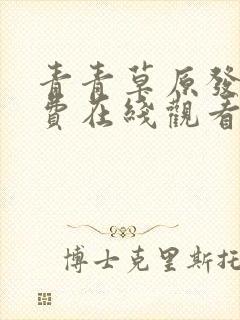 青青草原發
費在綫觀看
博士克里斯托